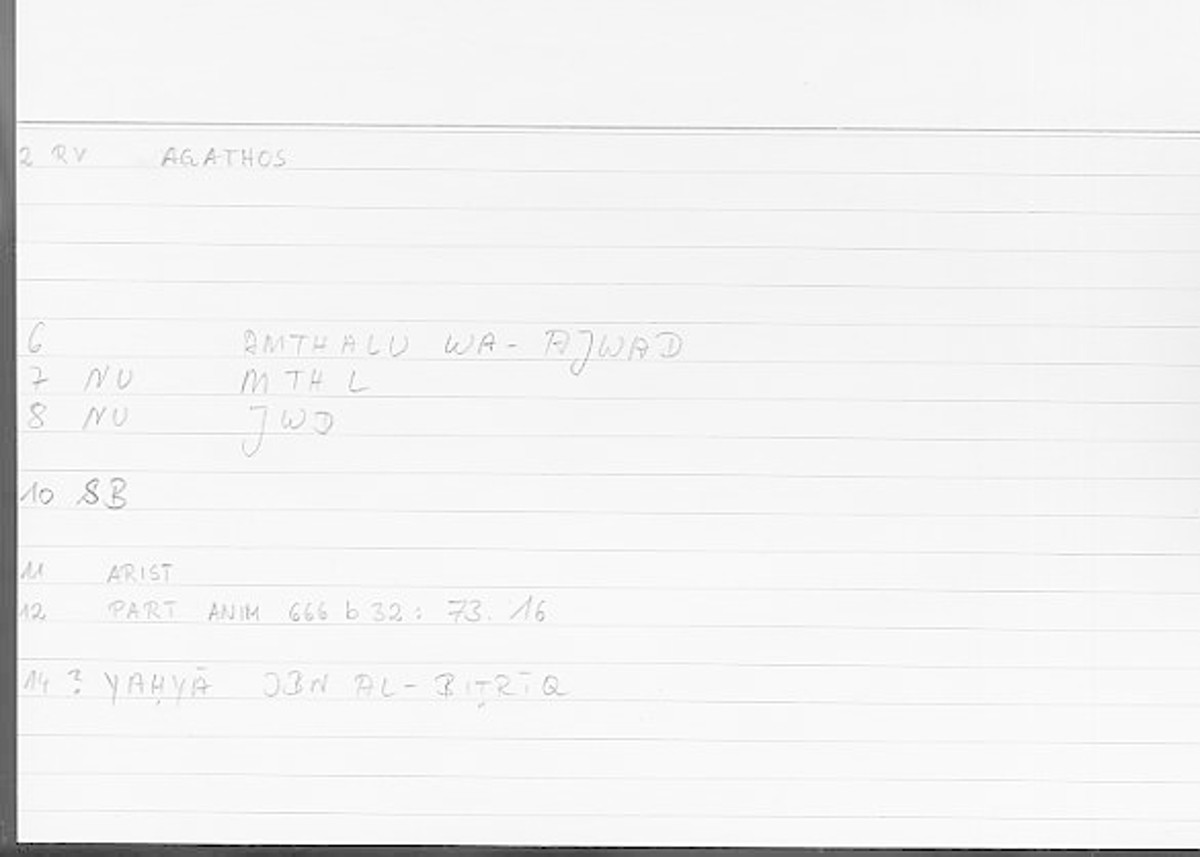 2 RV AGATHOS
6 AMTHALU WA- AJWAD
7 NU MTHL
8 NU JWD
10 SB
11 ARIST
12 PART ANIM 666 b 32 : 73. 16
14 ? YAḤYĀ IBN AL- BIṬRĪQ